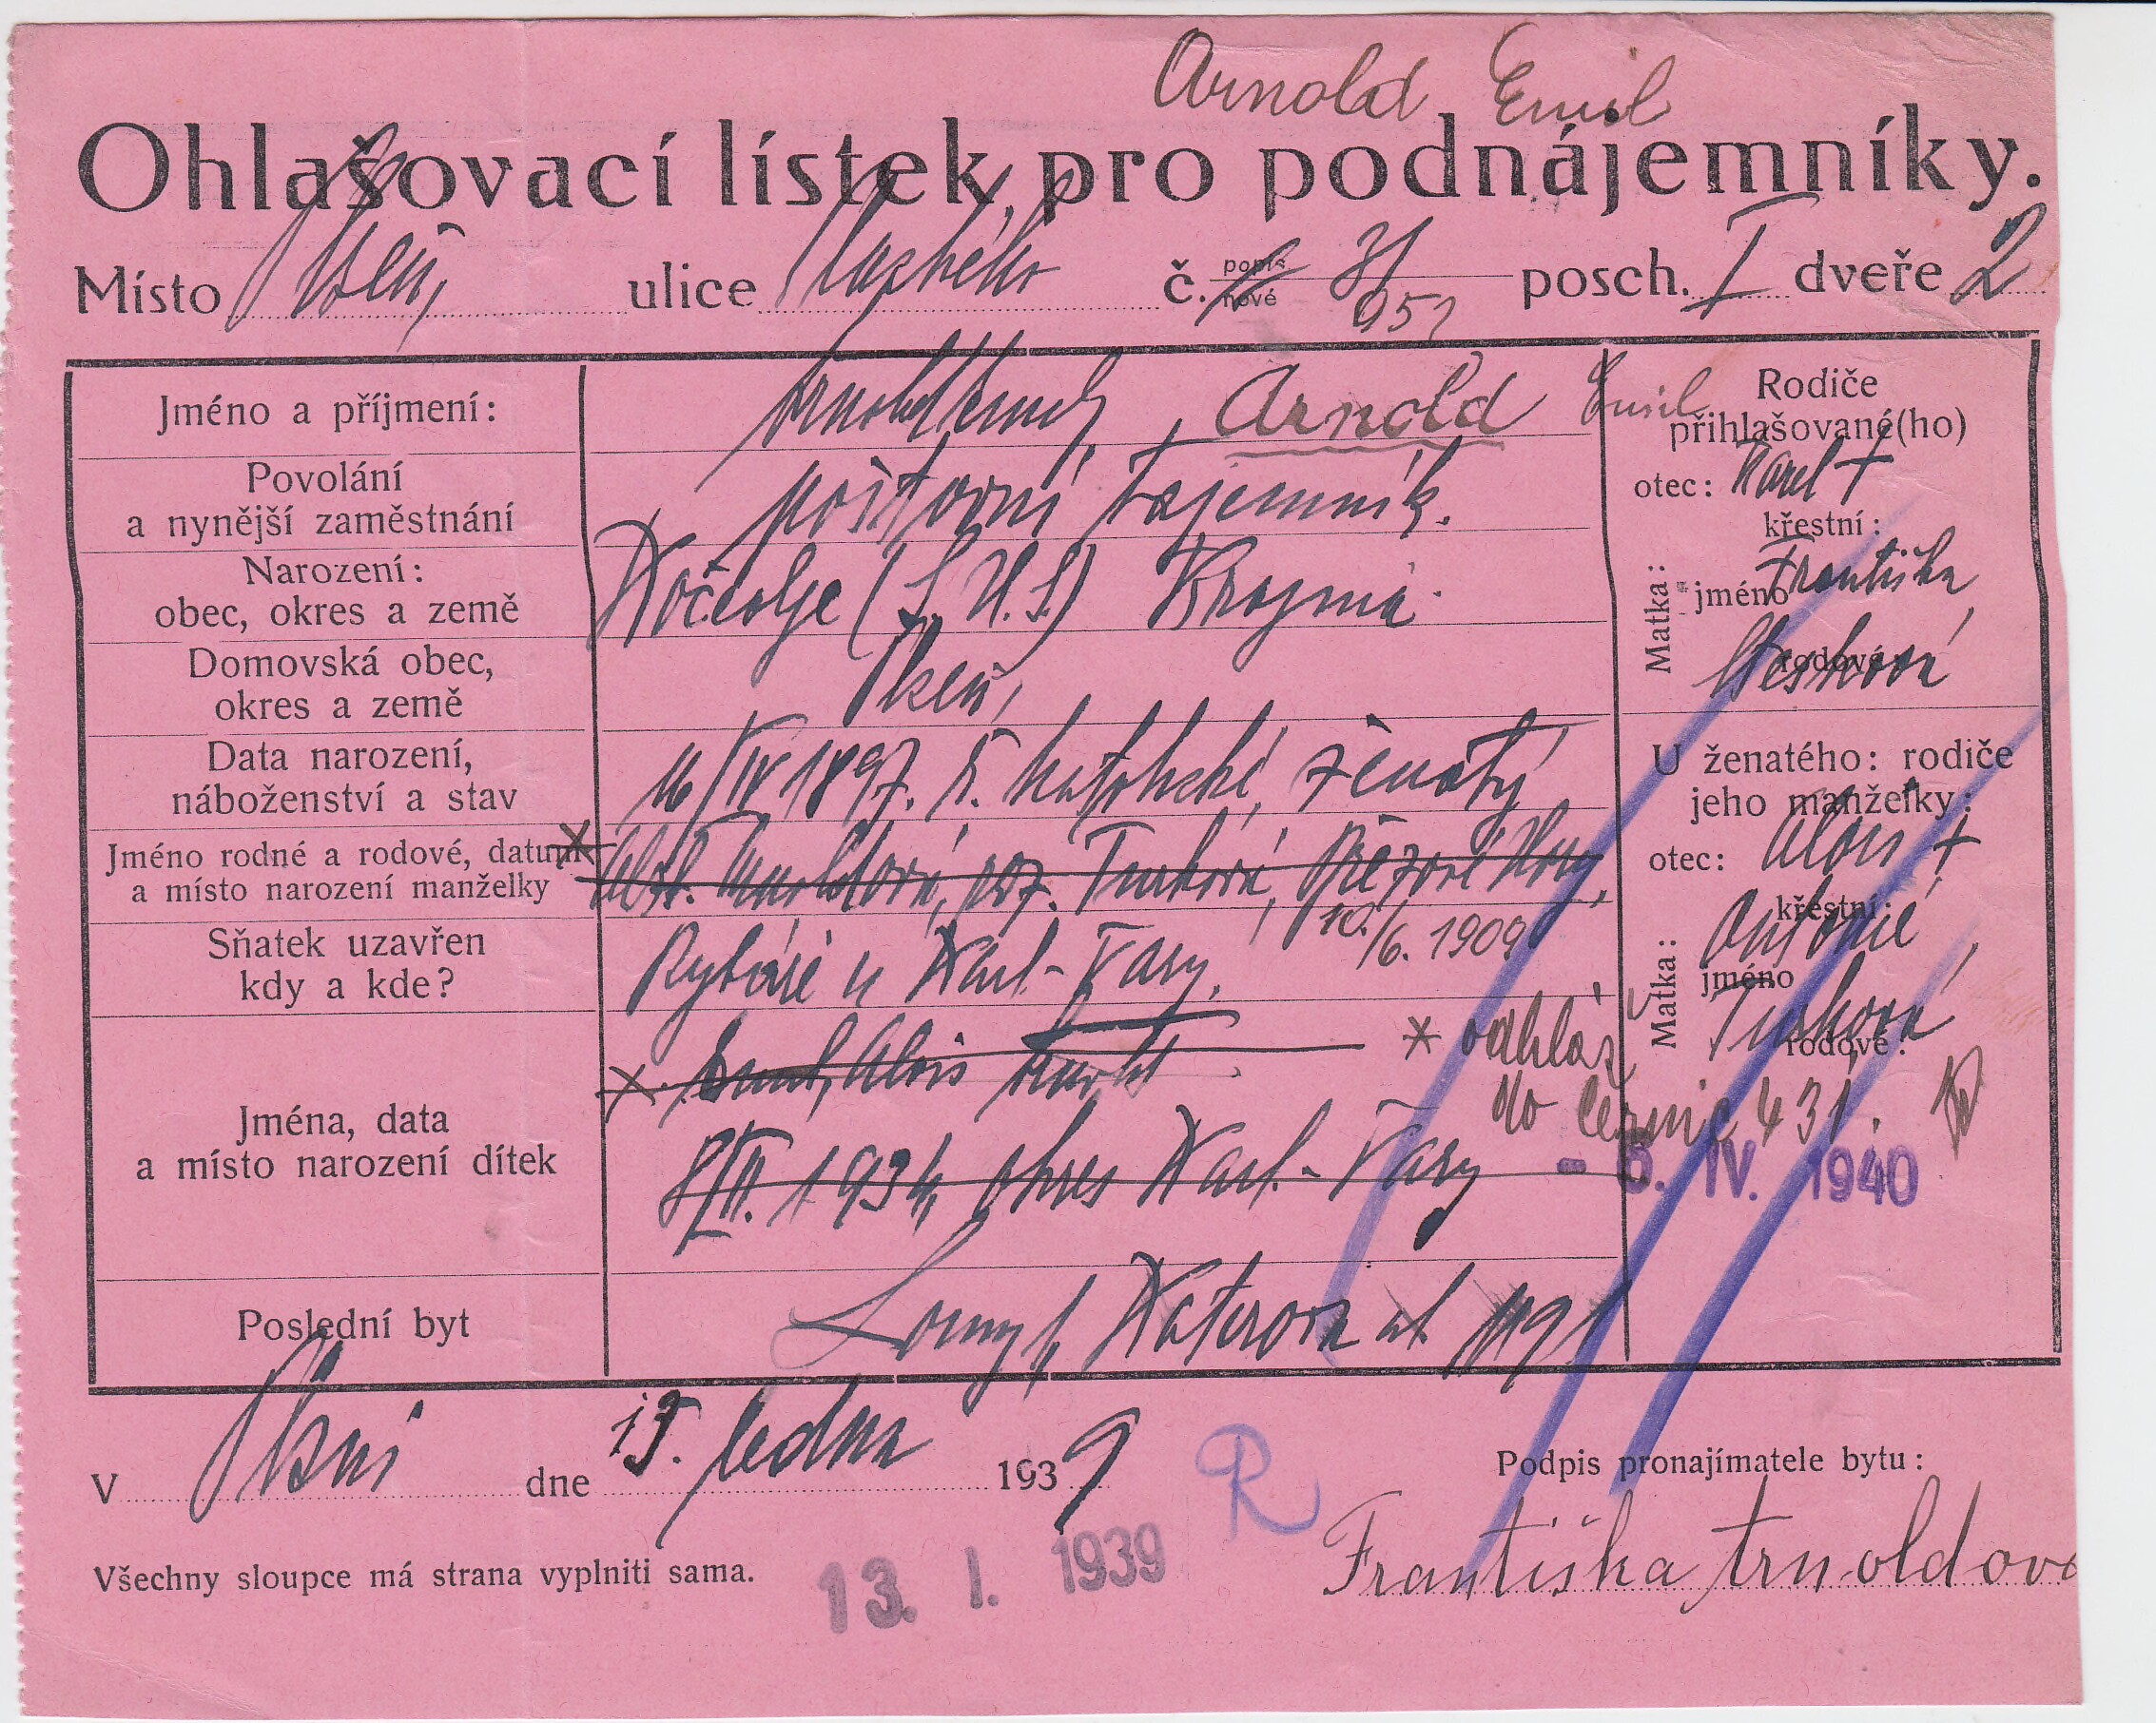 Arnold Emil
Ohlašovací lístek pro podnájemníky.
Místo Plzeň, ulice č. popis nové 31 posch. I dveře 2
952
Jméno a příjmení: Arnold Emil, Arnold Emil
Povolání
a nynější zaměstnání poštovní tajemník.
Narození:
obec, okres a země Kočevlje (S. H. S.) Krajina
Domovská obec,
okres a země Plzeň,
Data narození,
náboženství a stav 16/IV 1897. ř. katolické, ženatý
Jméno rodné a rodové, datum
a místo narození manželky Arnoldová, roz. Turková, Březové Hory,
10./6. 1909
Sňatek uzavřen
kdy a kde? Rybáře u Karl. Vary.
Jména, data
a místo narození dítek
x Emil, Alois Arnold
1934, okres Karl.-Vary
* odhláš
do 431.
- 3. IV. 1940
Poslední byt Louny, 1191
Rodiče
přihlašované(ho)
otec: Karel †
Matka:
křestní:
jméno Františka
rodové:
U ženatého: rodiče
jeho manželky:
otec: Alois †
Matka:
křestní:
jméno Antonie
rodové: Turková
V Plzni dne 13. ledna 1939
R
Podpis pronajímatele bytu:
Františka Arnoldová
Všechny sloupce má strana vyplniti sama.
13. I. 1939